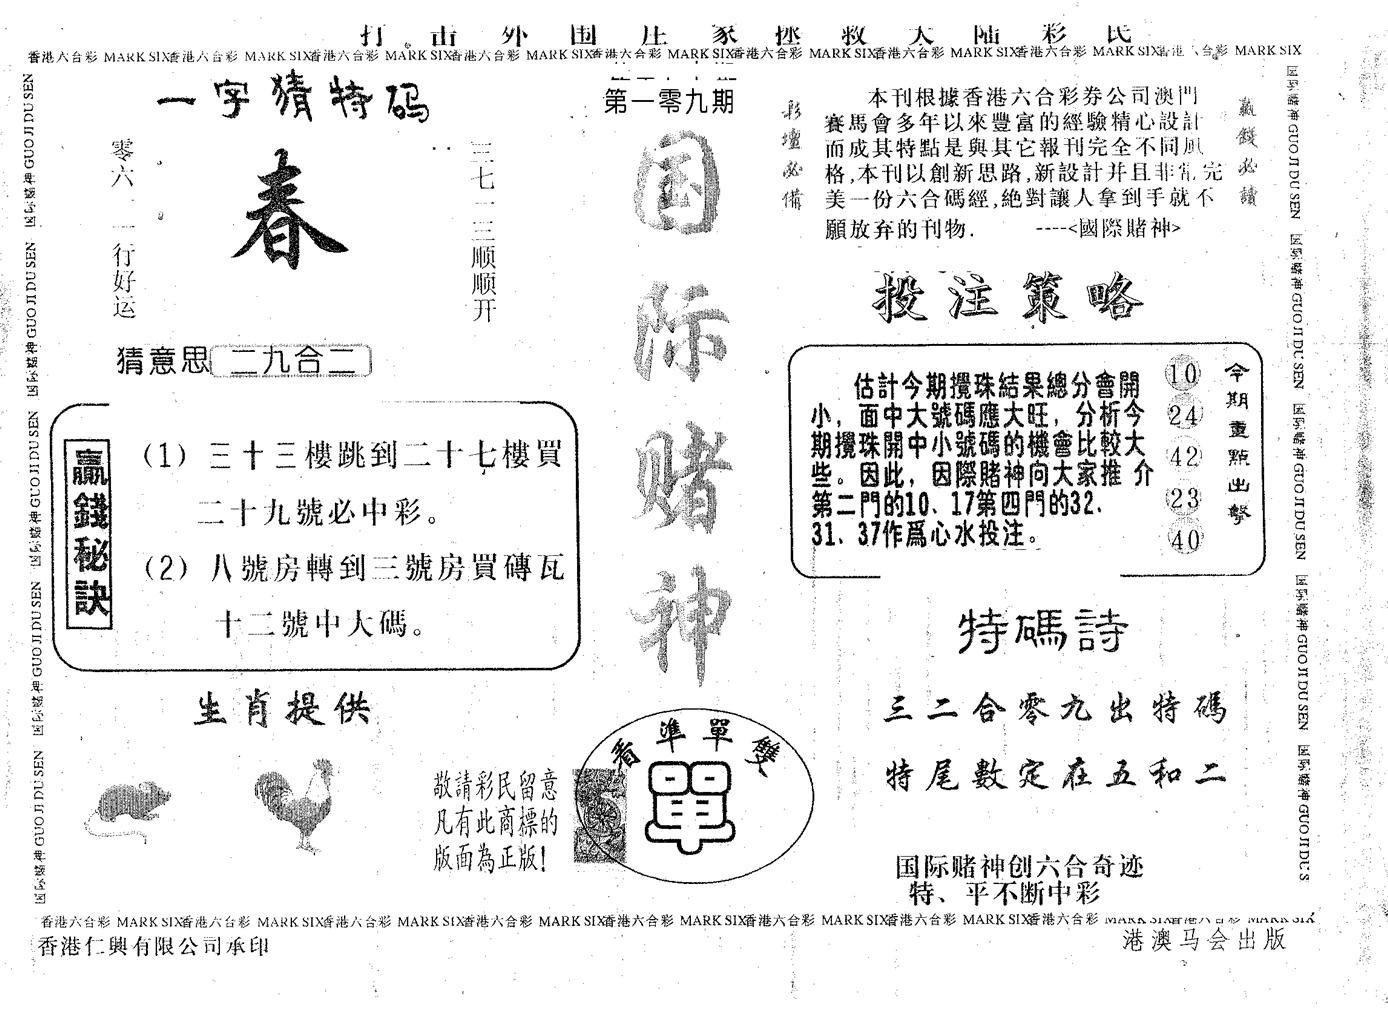 打击外围庄家拯救大陆彩民
香港六合彩 MARK SIX香港六合彩 MARK SIX香港六合彩 MARK SIX香港六合彩 MARK SIX香港六合彩 MARK SIX香港六合彩 MARK SIX香港六合彩 MARK SIX香港六合彩 MARK SIX香港六合彩 MARK SIX
国际赌神 GUO JI DU SEN 国际赌神 GUO JI DU SEN 国际赌神 GUO JI DU SEN 国际赌神 GUO JI DU SEN 国际赌神 GUO JI DU SEN
一字猜特码
零六一行好运
春
三七一三顺顺开
猜意思 二九合二
贏錢秘訣
(1) 三十三樓跳到二十七樓買
二十九號必中彩。
(2) 八號房轉到三號房買磚瓦
十二號中大碼。
生肖提供
第一零九期
国际赌神
敬請彩民留意
凡有此商標的
版面為正版!
看準單雙
單
彩壇必備
本刊根據香港六合彩券公司澳門
賽馬會多年以來豐富的經驗精心設計
而成其特點是與其它報刊完全不同風
格,本刊以創新思路,新設計并且非常完
美一份六合碼經,絶對讓人拿到手就不
願放弃的刊物. ----<國際賭神>
贏錢必讀
投注策略
估計今期攪珠結果總分會開
小，面中大號碼應大旺，分析今
期攪珠開中小號碼的機會比較大
些。因此，因際賭神向大家推 介
第二門的10、17第四門的32、
31、37作爲心水投注。
10
24
42
23
40
今期重點出擊
特碼詩
三二合零九出特碼
特尾數定在五和二
国际赌神创六合奇迹
特、平不断中彩
国际赌神 GUO JI DU SEN 国际赌神 GUO JI DU SEN 国际赌神 GUO JI DU SEN 国际赌神 GUO JI DU SEN 国际赌神 GUO JI DU S
香港六合彩 MARK SIX香港六合彩 MARK SIX香港六合彩 MARK SIX香港六合彩 MARK SIX香港六合彩 MARK SIX香港六合彩 MARK SIX香港六合彩 MARK SIX香港六合彩 MARK SIX香港六合彩 MARK SIX
香港仁興有限公司承印
港澳马会出版